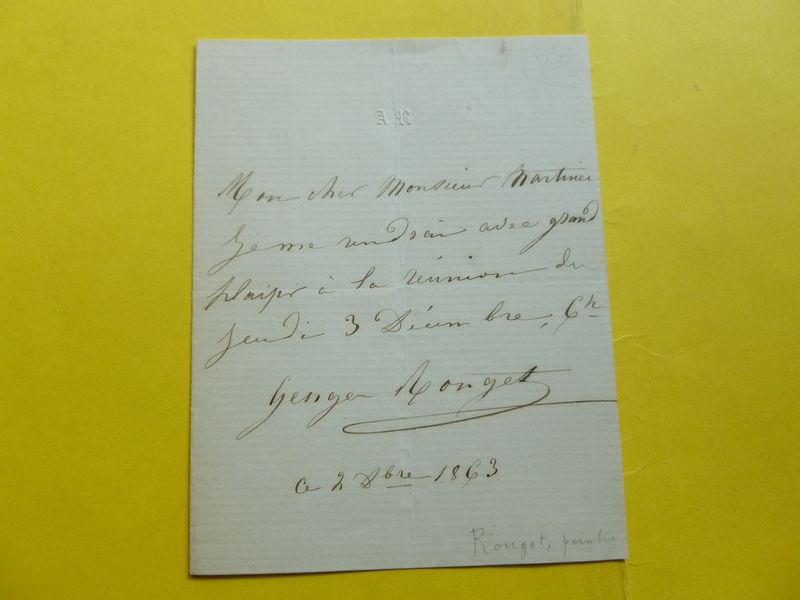 Mon cher Monsieur Martinet
Je me rendrai avec grand
plaisir à la réunion du
Jeudi 3 Décembre, 6h
Georges Rouget
ce 2 Dbre 1863
Rouget, peintre